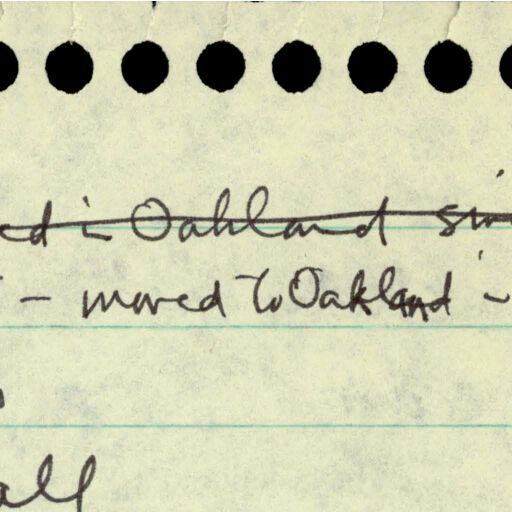 ed in Oakland sin
- moved to Oakland in
all